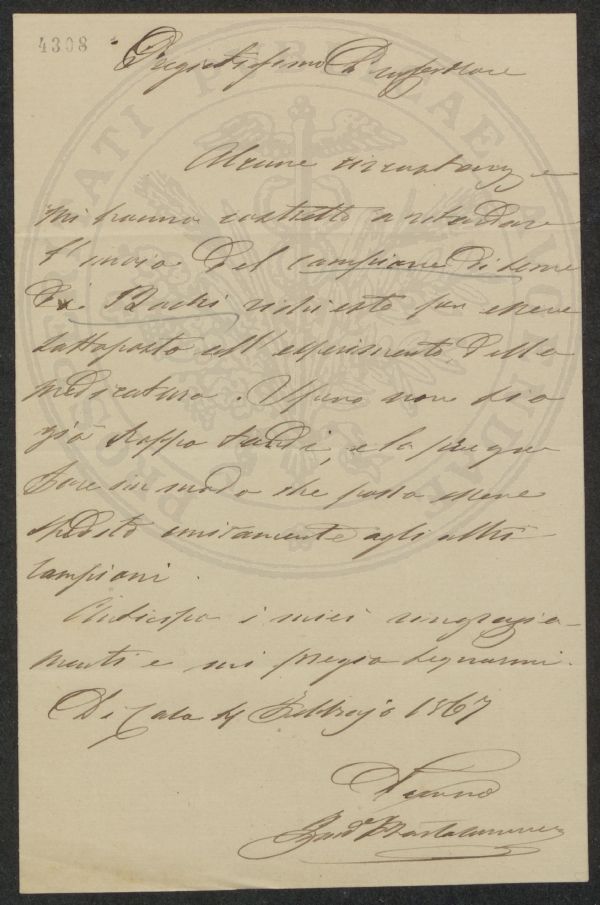 4308
Pregiatissimo Professore
Alcune circostanze
mi hanno costretto a ritardare
l'invio del campione di seme
di Bachi richiesto per essere
sottoposto all'esperimento della
medicatura. Spero non sia
già troppo tardi, e la prego
fare in modo che possa essere
spedito unitamente agli altri
campioni.
Anticipo i miei ringrazia-
menti e mi pregio segnarmi.
Di Casa 4 Febbrajo 1867
PROSPERITATI PUBLICAE AUGENDAE